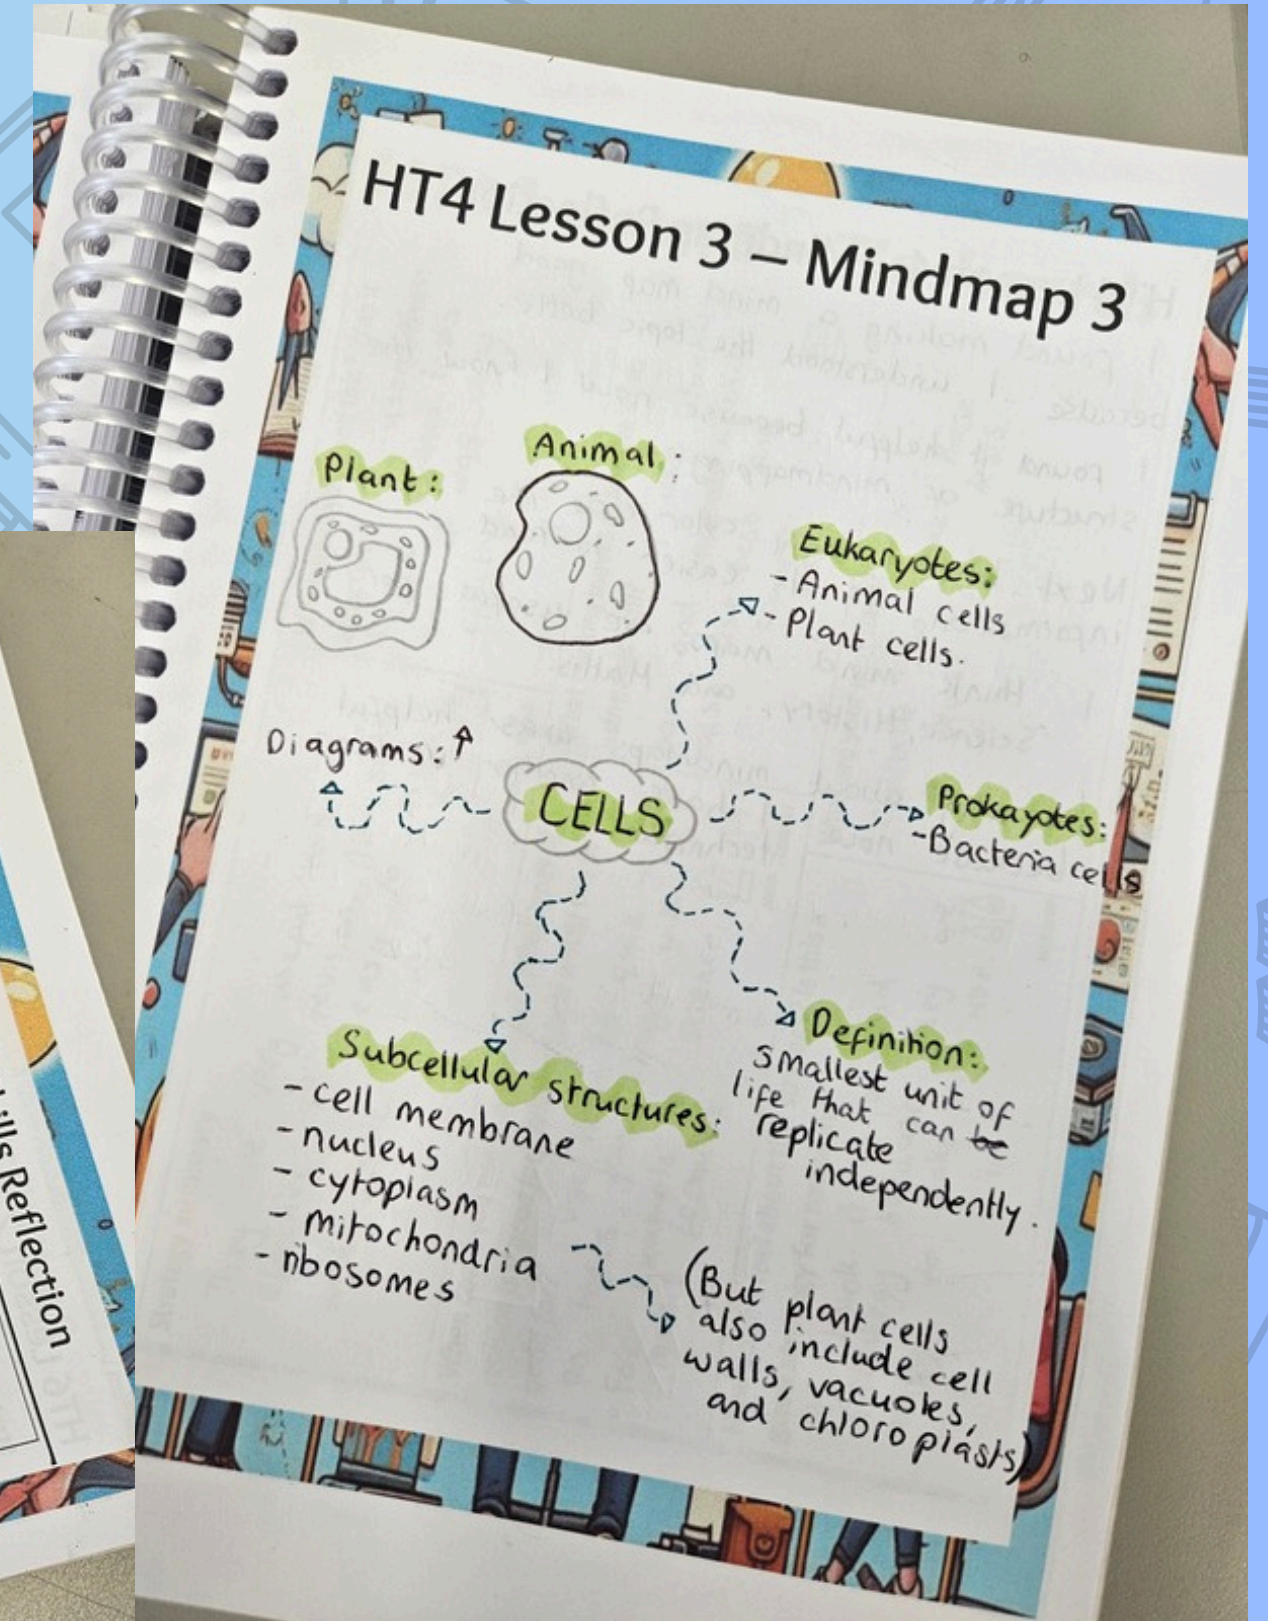 HT4 Lesson 3 – Mindmap 3
Plant:
Animal:
Eukaryotes:
- Animal cells
- Plant cells.
Diagrams:
CELLS
Prokayotes:
-Bacteria cells
Definition:
smallest unit of
life that can be
replicate
independently.
Subcellular structures:
- cell membrane
- nucleus
- cytoplasm
- mitochondria
- ribosomes
(But plant cells
also include cell
walls, vacuoles,
and chloroplasts)
ills Reflection